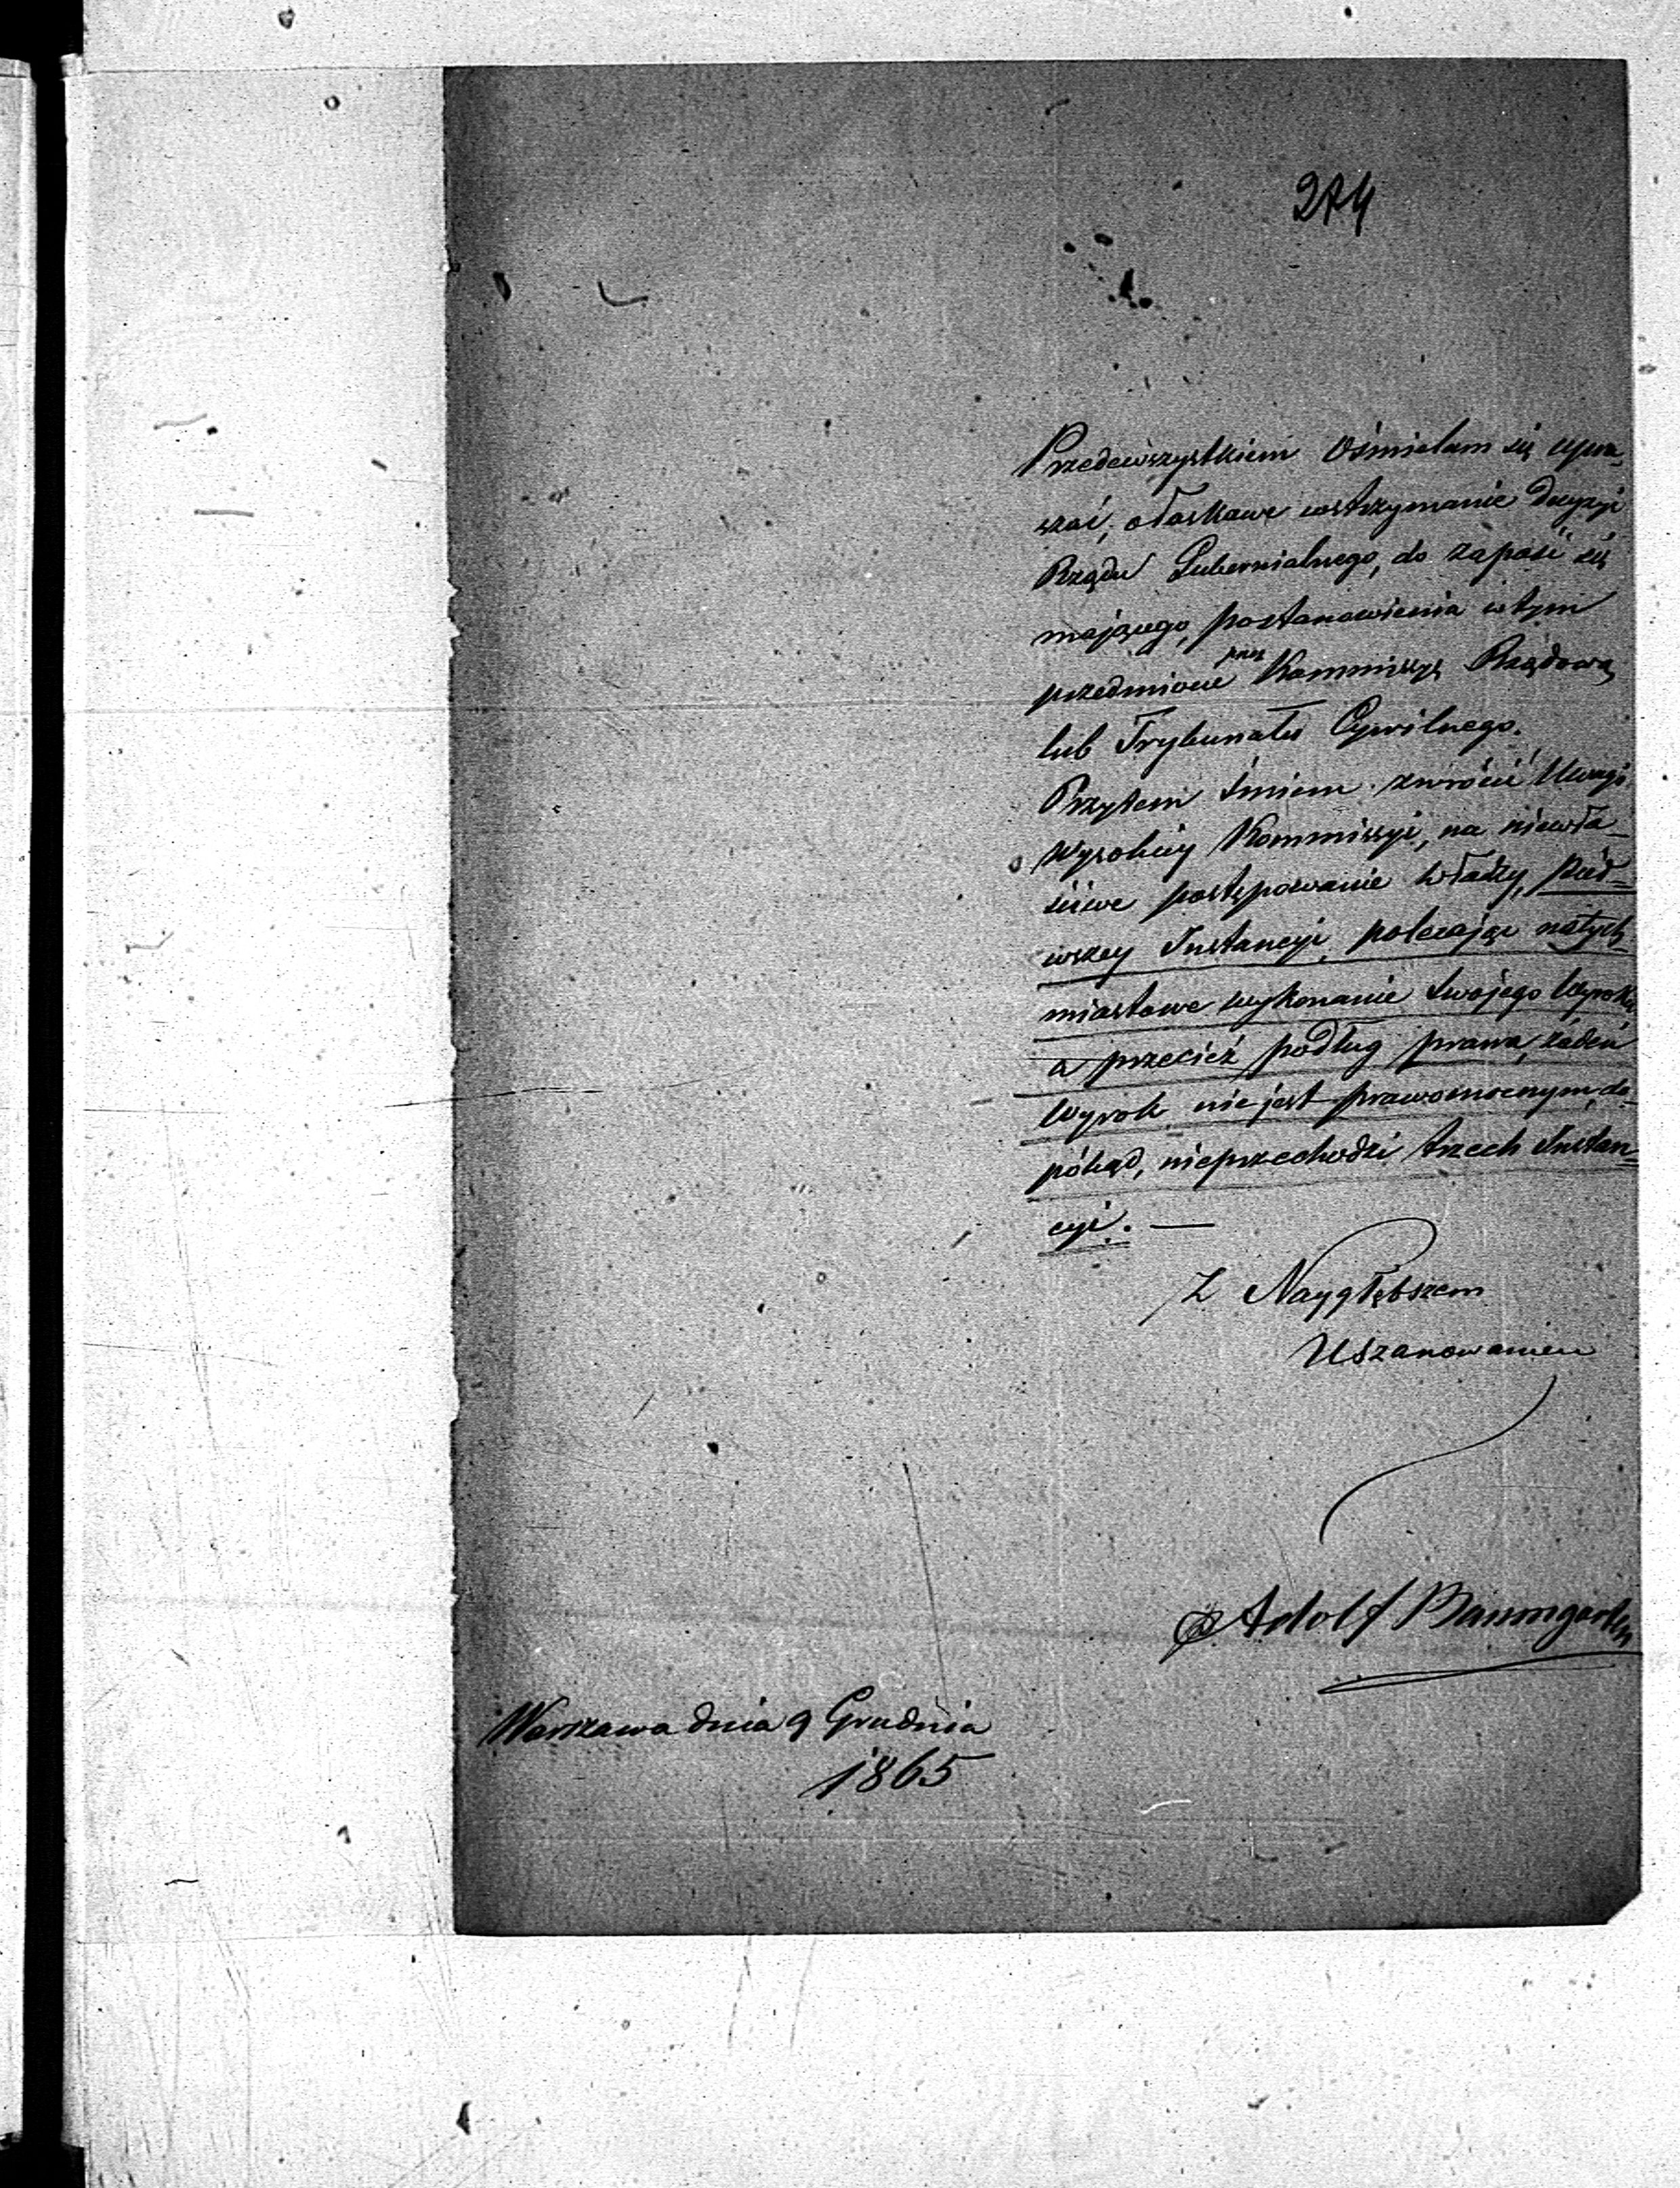 274
Przedewszystkiem Ośmielam się upra-
szać, o łaskawe wstrzymanie decyzyi
Rządu Gubernialnego, do zapaść się
mającego, postanowienia w tym
przedmiocie przez Kommissyę Rządową
lub Trybunału Cywilnego.
Przytem śmiem zwrócić Uwagę
Wysokiey Kommissyi, na niewła-
ściwe postępowanie władzy,
wszey Instancyi, polecając natych-
miastowe wykonanie swojego Wyroku
a przecież podług prawa, żaden
Wyrok nie jest prawomocnym, do-
pókąd, nieprzechodzi trzech Instan-
cyi. —
Z Naygłębszem
Uszanowaniem
Adolf Baumgarten
Warszawa dnia 9 Grudnia
1865